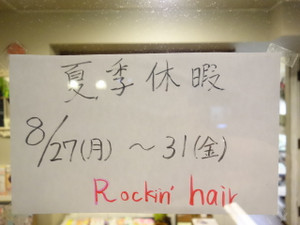 夏季休暇
8/27(月)～31(金)
Rockin' hair